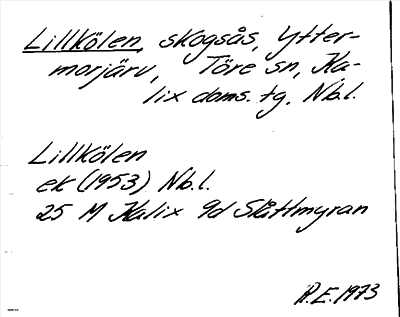 Lillkölen, skogsås, Ytter-
morjärv, Töre sn, Ka-
lix doms. tg, Nb.l.
Lillkölen
ek (1953) Nb.l.
25 M Kalix 9d Slåttmyran
R.E. 1973